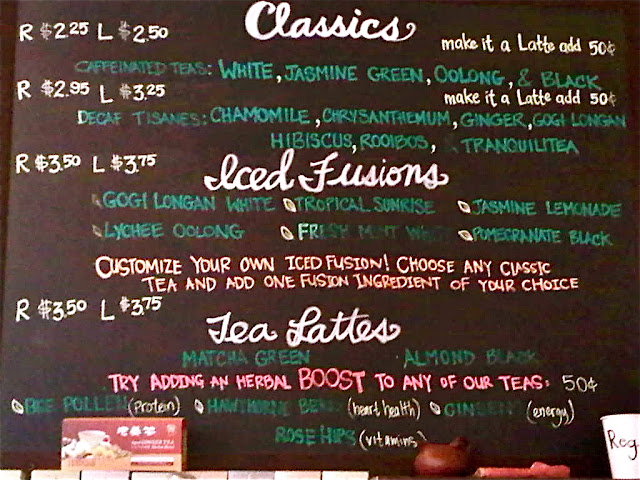 Classics
R $2.25 L $2.50
make it a Latte add 50¢
CAFFEINATED TEAS: WHITE, JASMINE GREEN, OOLONG, & BLACK
R $2.95 L $3.25
make it a Latte add 50¢
DECAF TISANES: CHAMOMILE, CHRYSANTHEMUM, GINGER, GOGI LONGAN
HIBISCUS, ROOIBOS, TRANQUILITEA
R $3.50 L $3.75
Iced Fusions
GOGI LONGAN WHITE TROPICAL SUNRISE JASMINE LEMONADE
LYCHEE OOLONG FRESH MINT WHITE POMEGRANATE BLACK
CUSTOMIZE YOUR OWN ICED FUSION! CHOOSE ANY CLASSIC
TEA AND ADD ONE FUSION INGREDIENT OF YOUR CHOICE
R $3.50 L $3.75
Tea Lattes
MATCHA GREEN ALMOND BLACK
TRY ADDING AN HERBAL BOOST TO ANY OF OUR TEAS: 50¢
BEE POLLEN (protein) HAWTHORNE BERRY (heart health) GINSENG (energy)
ROSE HIPS (vitamins)
GINGER TEA
Reg